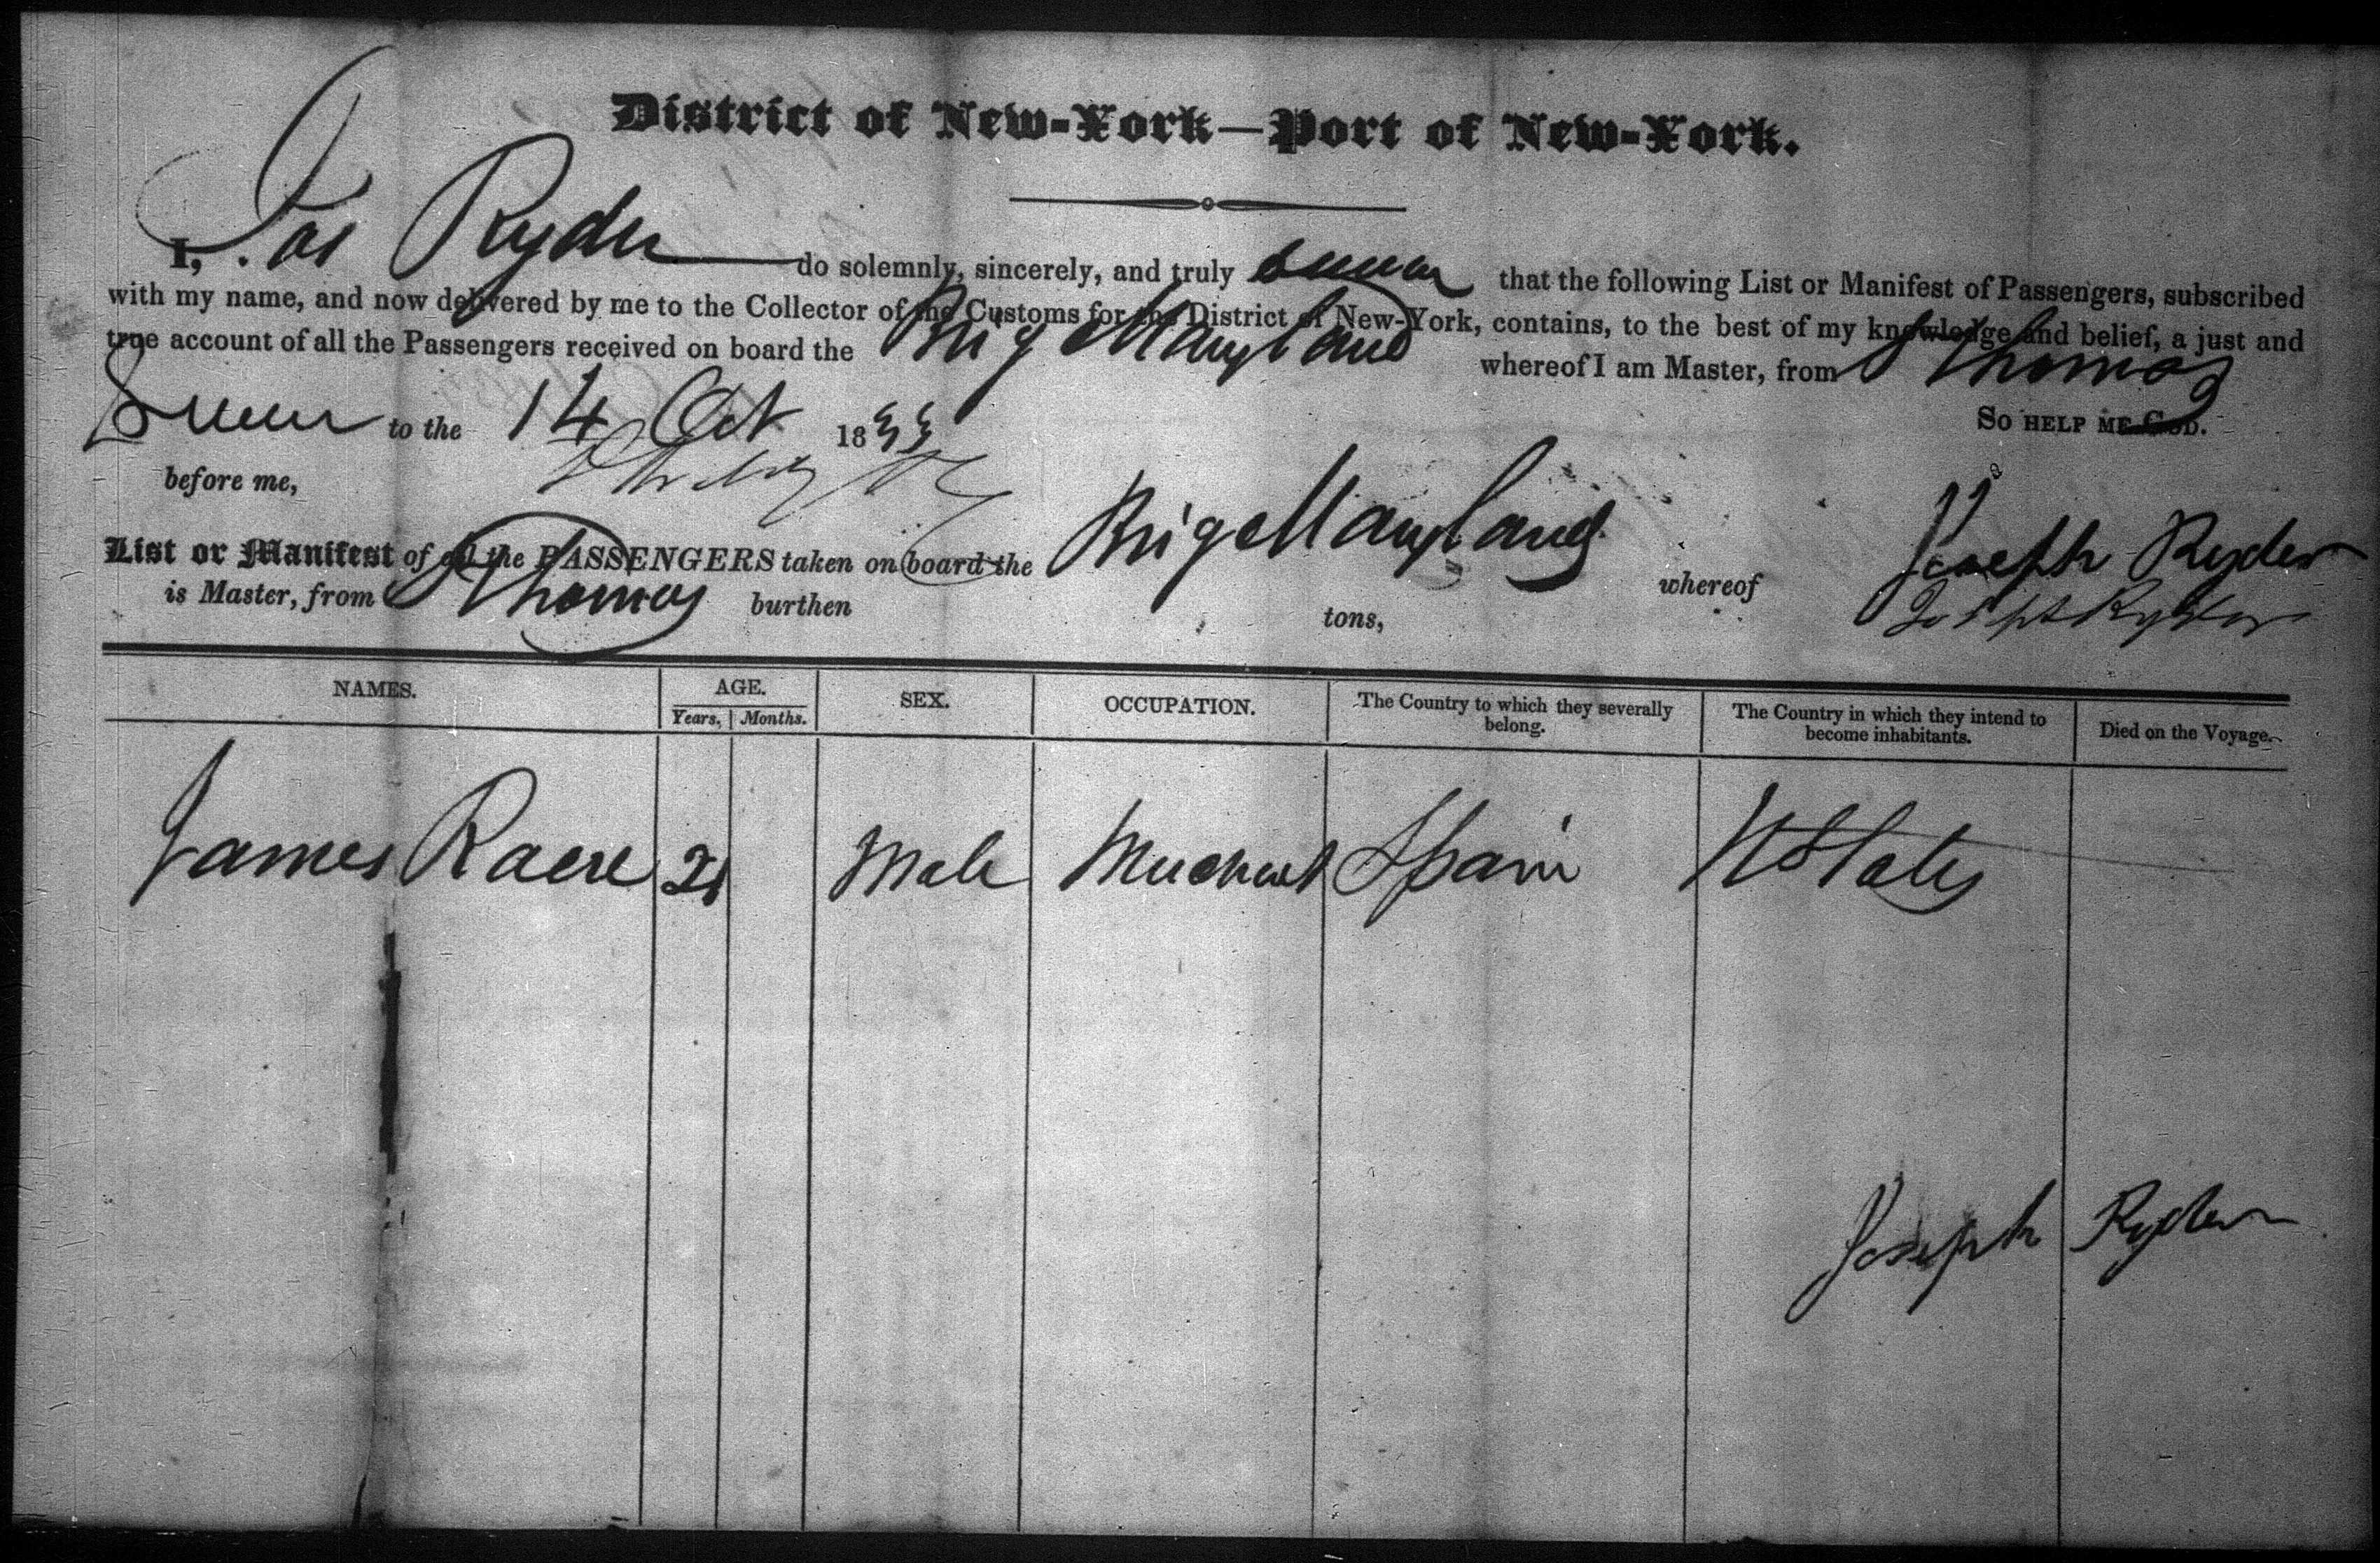 District of New-York—Port of New-York.
I, Jos Ryder do solemnly, sincerely, and truly swear that the following List or Manifest of Passengers, subscribed
with my name, and now delivered by me to the Collector of the Customs for the District of New-York, contains, to the best of my knowledge and belief, a just and
true account of all the Passengers received on board the Brig Maryland whereof I am Master, from St Thomas
Sworn to the 14 Oct 1833 So HELP ME GOD.
before me,
Joseph Ryder
List or Manifest of all the PASSENGERS taken on board the Brig Maryland whereof Joseph Ryder
is Master, from St Thomas burthen tons,
NAMES. AGE. SEX. OCCUPATION. The Country to which they severally belong. The Country in which they intend to become inhabitants. Died on the Voyage.
Years. Months.
James 21 Male Merchant Spain U States
Joseph Ryder